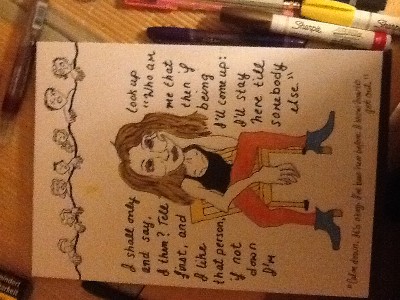 I shall only look up
and say, "Who am
I then? Tell me that
first, and then if
I like being
that person, I'll come up:
if not I'll stay
down here till
I'm somebody
else"
"Calm down, it's okay. I've been here before & know how to
get out."
Sharpie
Sharpie